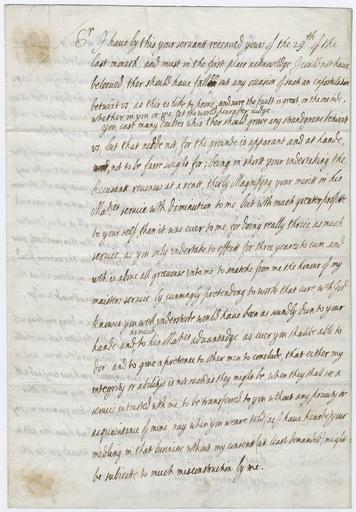 Sr I haue by this your servant receiued yours of the 29th of the
last moneth, and must in the first place acknowledge I could not haue
beleeued ther should haue fallen out any occasion of such an expostulation
betwixt vs as this is like to prove, and sure the fault is great in the one side,
whether in you or me, let the world hearafter iudge.
you cast many doubts whie ther should grow any strangnesse betwixt
vs, but that needs not, for the grounde is apparant and at hande,
not to be farre sought for; being in short your undertaking the
Recusant revenew at a rent, therby Magnifying your merit in his
Maties service wth diminution to me, but wth much greater proffitt
to your self then it was ever to me, for doing really thrice as much
service, as you only undertake to effect for three yeares to cum and
wch is aboue all greeuous vnto me to snatche from me the honour of my
maisters service by cunningly pretending to worke that cure, wch God
knowes you well understoode would haue been as soundly dun to your
hande and to his Maties as much advantadge as ever you shalbe able to
doe and to giue a pretence to other men to conclude, that either my
integrity or ability is not such as they might be when they shall see a
service intrusted with me, to be transferred to you without any privity or
acquaintance of mine nay when you weare told (as I haue hearde) your
medling in that business without my consent (at least demanded) might
be subiecte to much misconstruction by me.